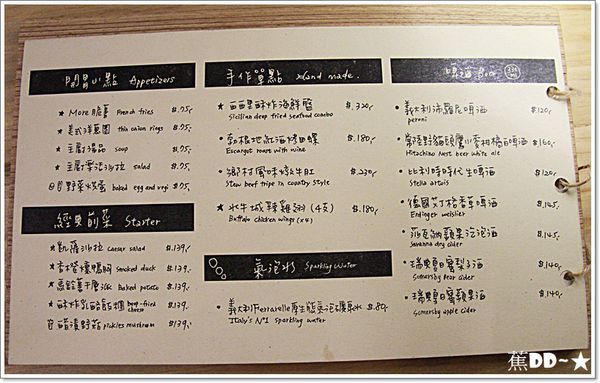 開胃小點 Appetizers
★ More脆薯 French fries $.75,
★ 美式洋蔥圈 thin onion rings $.75,
★ 主廚湯品 soup $.75,
★ 主廚 沙拉 salad $.75,
野菜烘蛋 baked egg and vegi $.75,
經典前菜 Starter
★ 凱薩沙拉 caesar salad $.139,
★ 香橙燻鴨胸 smoked duck $.139,
★ 馬鈴薯 baked potato $.139,
★ 酥炸乳酪 deep-fried cheese $.139,
醋漬野菇 pickles mushrum $.139,
手作單點 Hand made.
★ 西西里酥炸海鮮 $.320,
Sicilian deep fried seafood combo
★ 勃根地紅酒烤田螺 $.180,
Escargot roast with wine
★ 鄉村風味燉牛肚 $.230,
Stew beef tripe in country style
★ 水牛城辣雞翅 (4支) $.180,
Buffalo chicken wings (x4)
氣泡水 Sparkling water
• 義大利Ferrarelle原生態氣泡礦泉水 $.80,
Italy's N°1 sparkling water
啤酒 Beer
• 義大利沛羅尼啤酒 $120,
peroni
• 常陸野貓頭鷹小麥柑橘白啤酒 $160,
Hitachino Nest beer white ale
• 比利時時代生啤酒 $120,
Stella artois
• 德國艾丁格香草啤酒
Erdinger weisbier
• 莎瓦納蘋果汽泡酒 $.140,
Savanna dry cider
• 瑞典夏日蜜梨子酒 $.140,
Somersby pear cider
• 瑞典夏日蜜蘋果酒 $.140,
Somersby apple cider
蕉DD~★